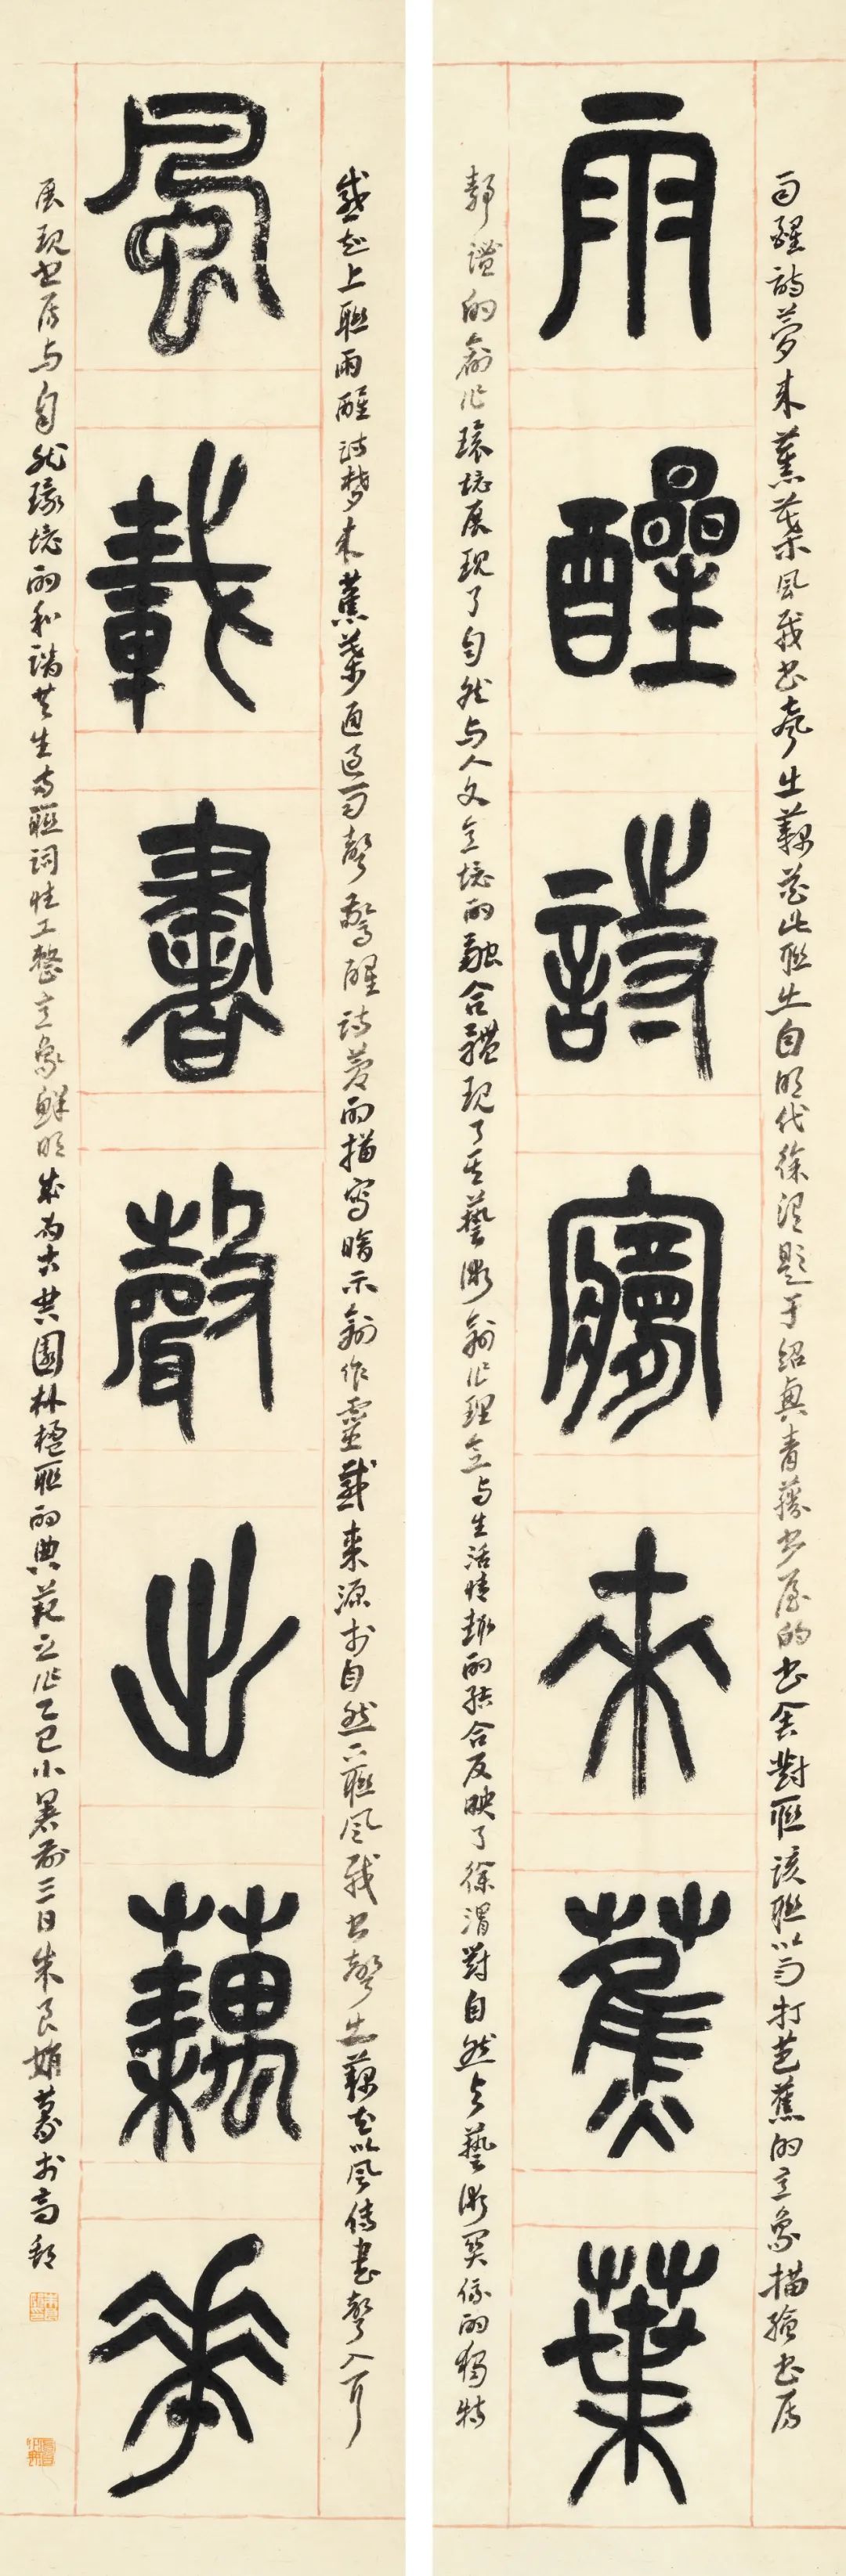 雨醒詩夢來蕉葉
風載書聲出藕花
雨醒詩夢來蕉葉風載書聲出藕花此聯出自明代徐渭題于紹興青藤書屋的書舍對聯該聯以雨打芭蕉的意象描繪書房
靜謐的創作環境展現了自然與人文意境的融合體現了其藝術創作理念与生活情趣的結合反映了徐渭對自然与藝術關係的獨特
感知上聯雨醒詩夢來蕉葉通過雨聲驚醒詩夢的描寫暗示創作靈感來源於自然下聯風載書聲出藕花以風傳書聲入耳
展現書房与自然環境的和諧共生兩聯詞性工整意象鮮明成為古典園林楹聯的典範之作乙巳小暑前三日朱良娟篆於高郵